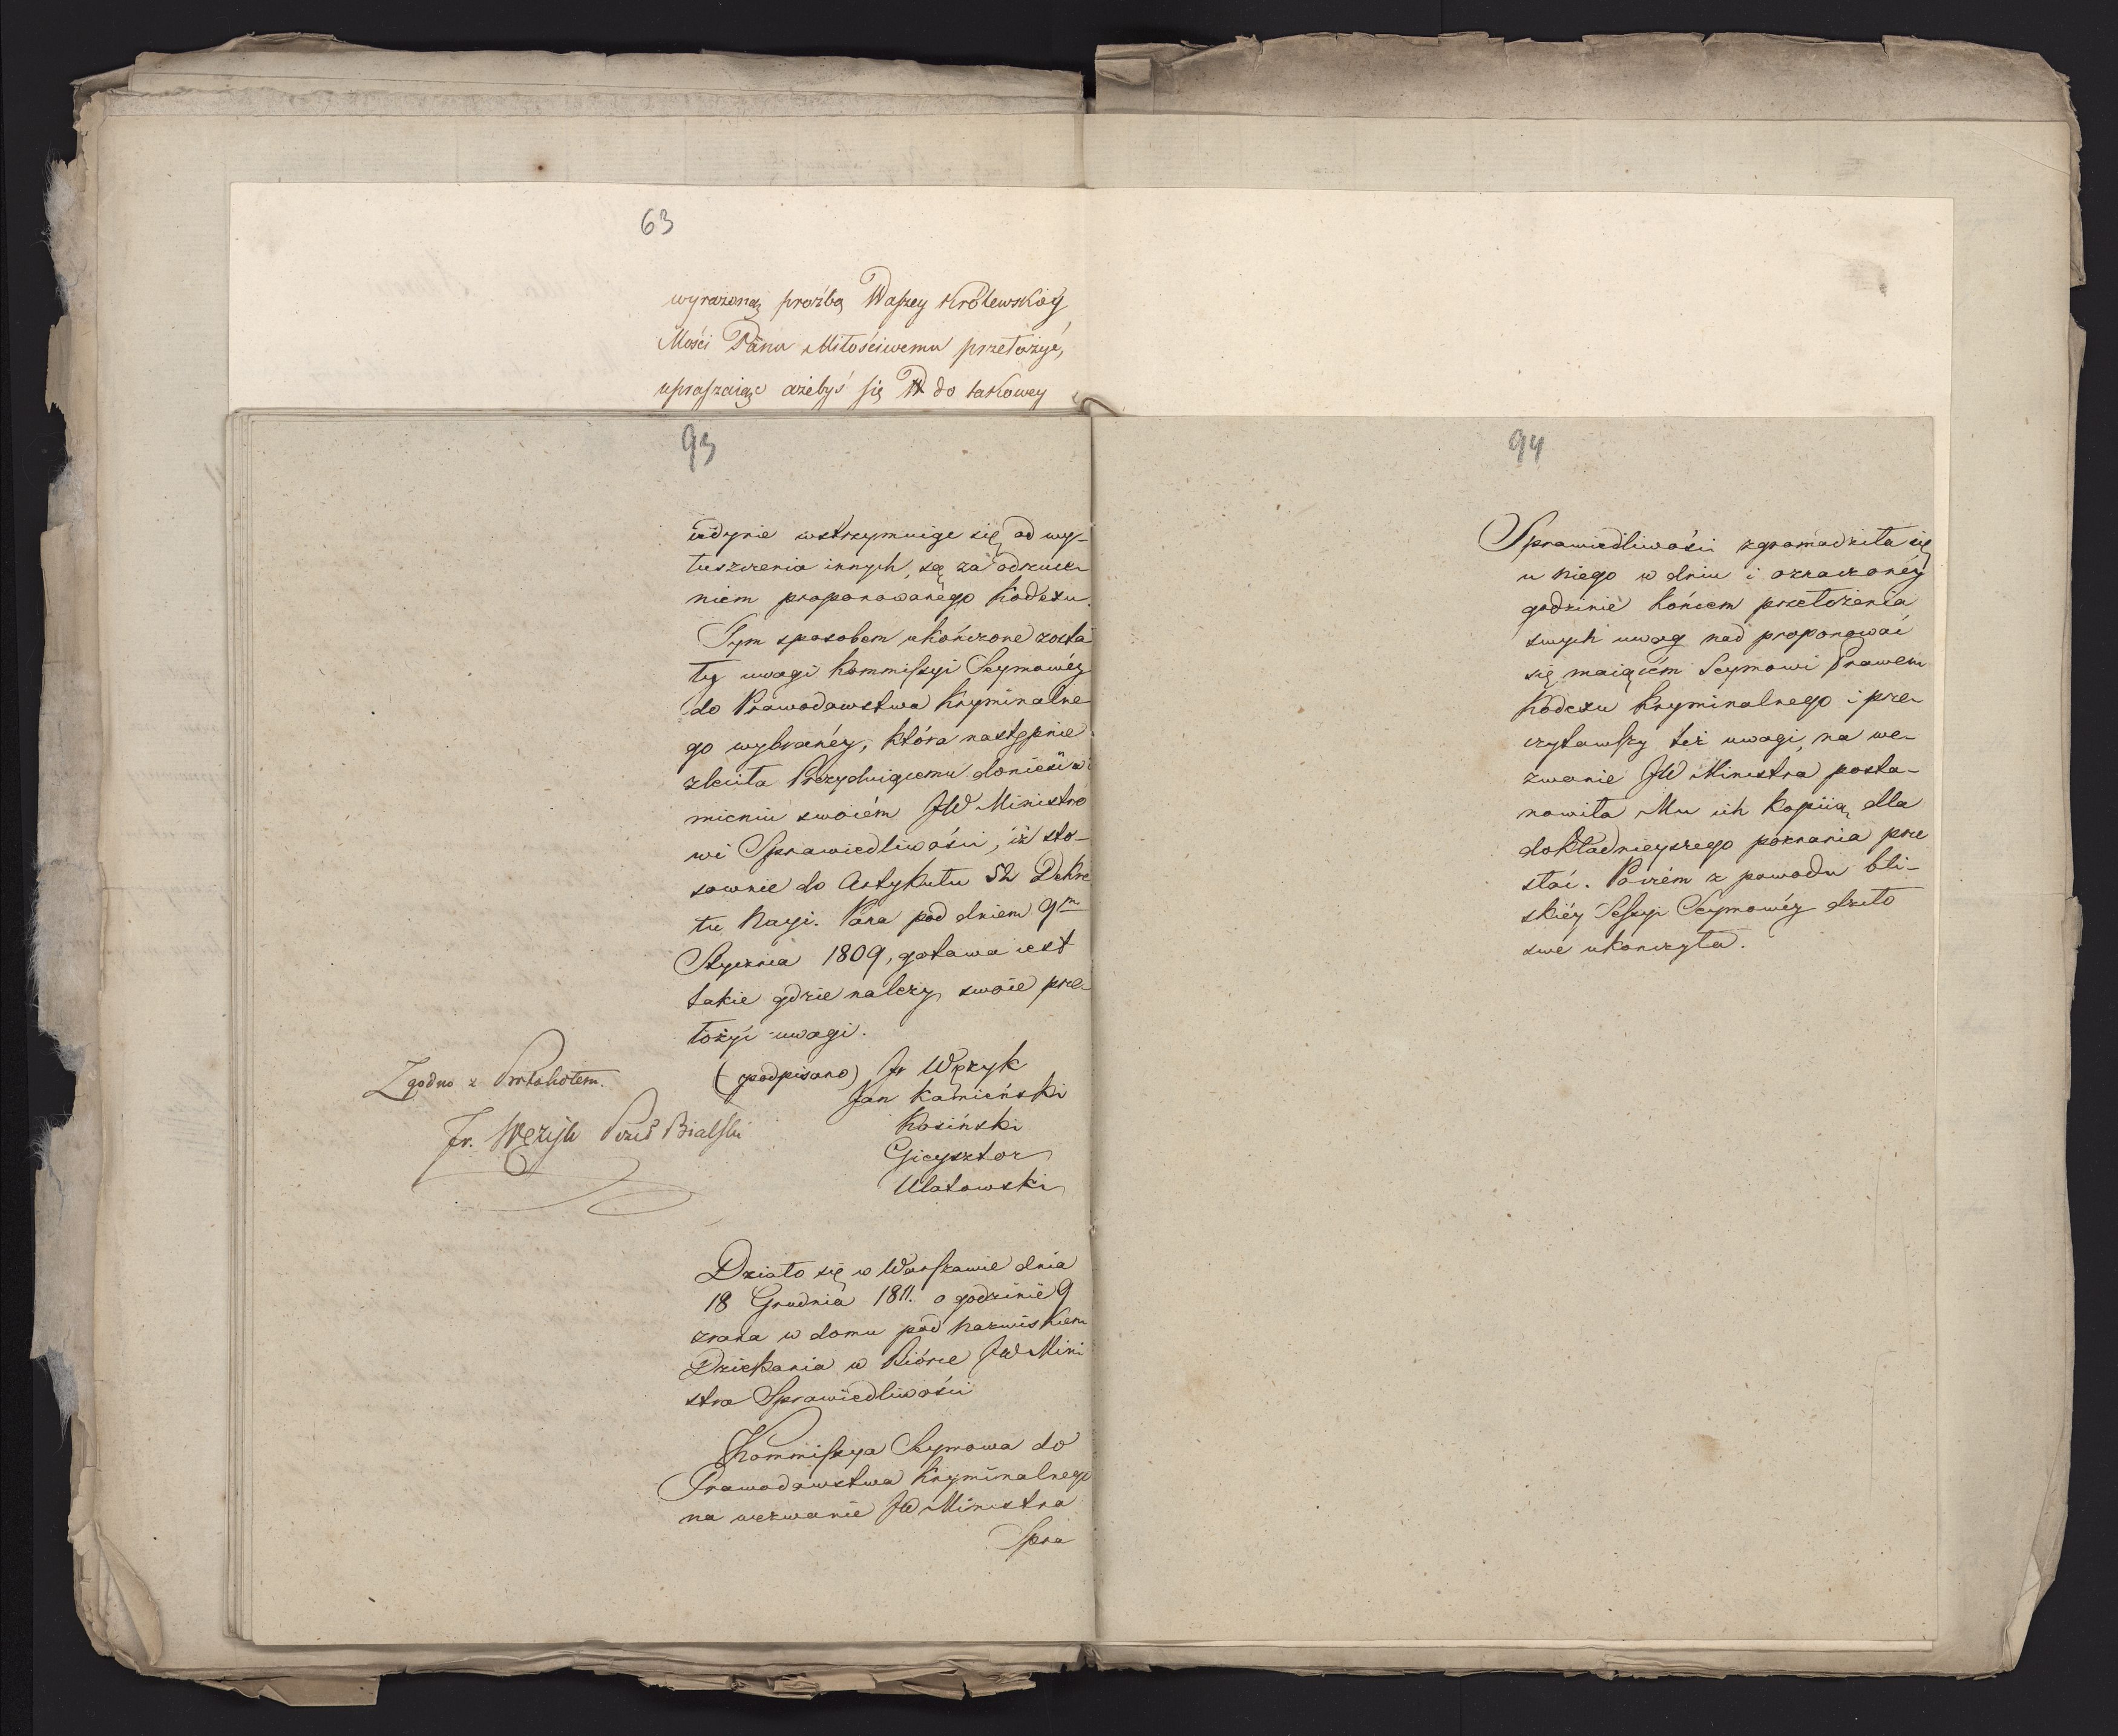 63
wyrażoną proźbę Waszey Królewskiey
Mości Panu Miłościwemu przełożyć,
upraszaiąc ażebyś się do takowey
93
iedynie wstrzymuiąc się od wy-
łuszczenia innych, są za odrzuce-
niem proponowanego Kodexu.
Tym sposobem ukończone zosta
ły uwagi Kommissyi Seymowéy
do Prawodawstwa Kryminalne
go wybranéy, która następnie
zleciła Prezyduiącemu donieść w i
mieniu swoiém JW Ministro
wi Sprawiedliwości, iż sto-
sownie do Artykułu 52 Dekre
tu Nayj. Pana pod dniem 9m
Stycznia 1809, gotowa iest
takie gdzie należy swoie prze-
łożyć uwagi.
(podpisano) Fr Wężyk
Jan Kamieński
Kosiński
Gieysztor
Ulatowski
Zgodno z Protokołem.
Fr. Wężyk Poseł Bialski
Działo się w Warszawie dnia
18 Grudnia 1811. o godzinie 9
zrana w domu pod nazwiskiem
Dziekania w Biórze JW Mini
stra Sprawiedliwości
Kommissya Seymowa do
Prawodawstwa Kryminalnego
na wezwanie JW Ministra
Spra
94
Sprawiedliwości zgromadziła się
u niego w dniu i oznaczonéy
godzinie końcem przełożenia
swych uwag nad proponować
się maiącém Seymowi Prawem
Kodexu Kryminalnego i prze-
czytawszy też uwagi, na we-
zwanie JW Ministra posta-
nowiła Mu ich kopiią dla
dokładnieyszego poznania prze
słać. Poczém z powodu bli-
skiéy Sessyi Seymowéy dzieło
swe ukończyła.